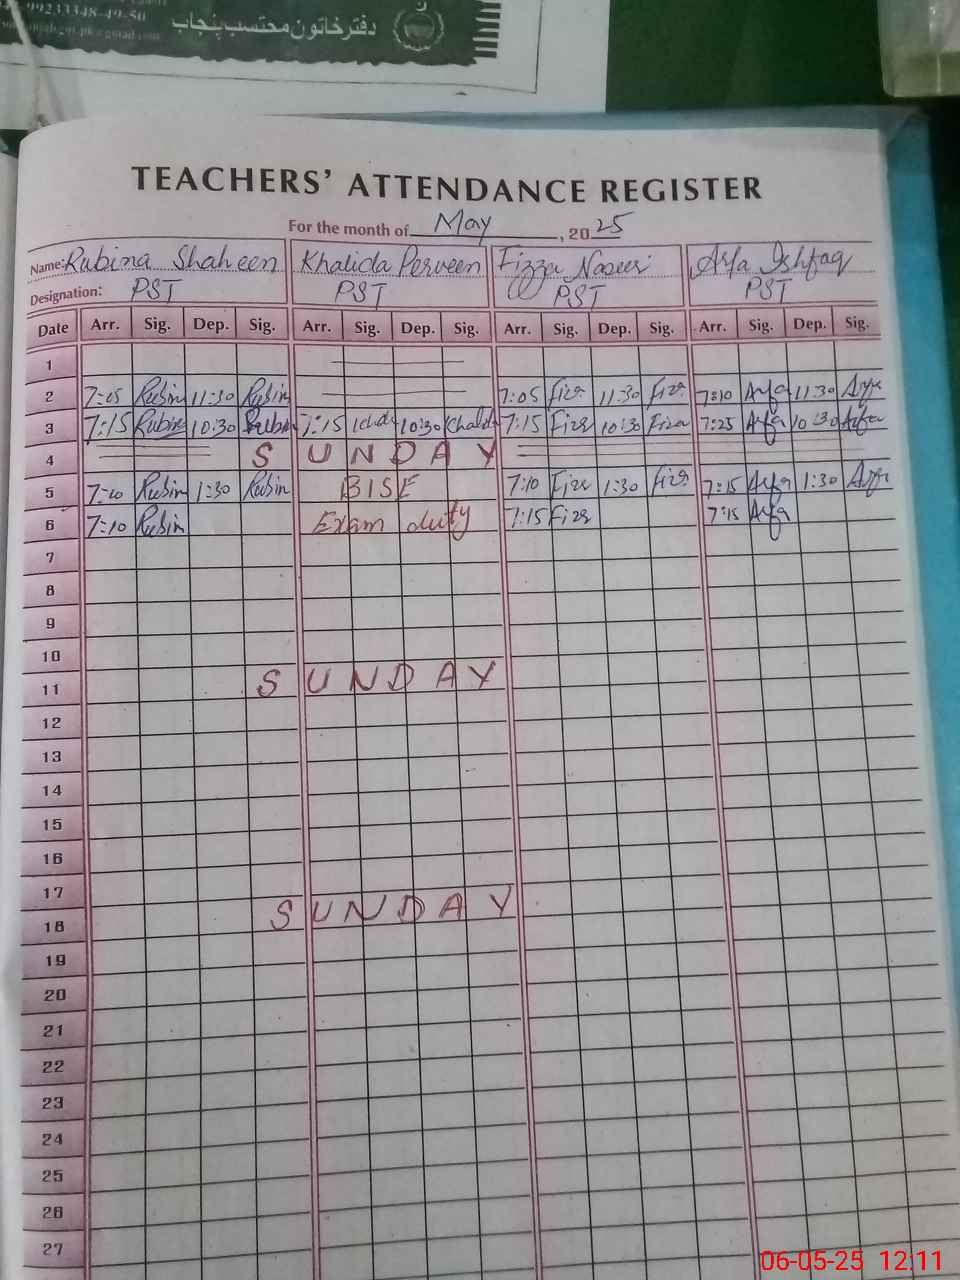 99233348-49-50
دفتر خاتون محتسب پنجاب
TEACHERS' ATTENDANCE REGISTER
For the month of May, 2025
Name: Rubina Shaheen Khalida Perveen Fizza Naseer Arfa Ishfaq
Designation: PST PST PST PST
Date Arr. Sig. Dep. Sig. Arr. Sig. Dep. Sig. Arr. Sig. Dep. Sig. Arr. Sig. Dep. Sig.
1
2 7:05 Rubin 11:30 Rubin 7:05 Fiza 11:30 Fiza 7:10 Arfa 11:30 Arfa
3 7:15 Rubin 10:30 Rubin 7:15 Khald 10:30 Khald 7:15 Fiza 10:30 Fiza 7:25 Arfa 10:30 Arfa
4 SUNDAY
5 7:10 Rubin 1:30 Rubin BISE 7:10 Fiza 1:30 Fiza 7:15 Arfa 1:30 Arfa
6 7:10 Rubin Exam duty 7:15 Fiza 7:15 Arfa
7
8
9
10
11 SUNDAY
12
13
14
15
16
17
18 SUNDAY
19
20
21
22
23
24
25
26
27
06-05-25 12:11